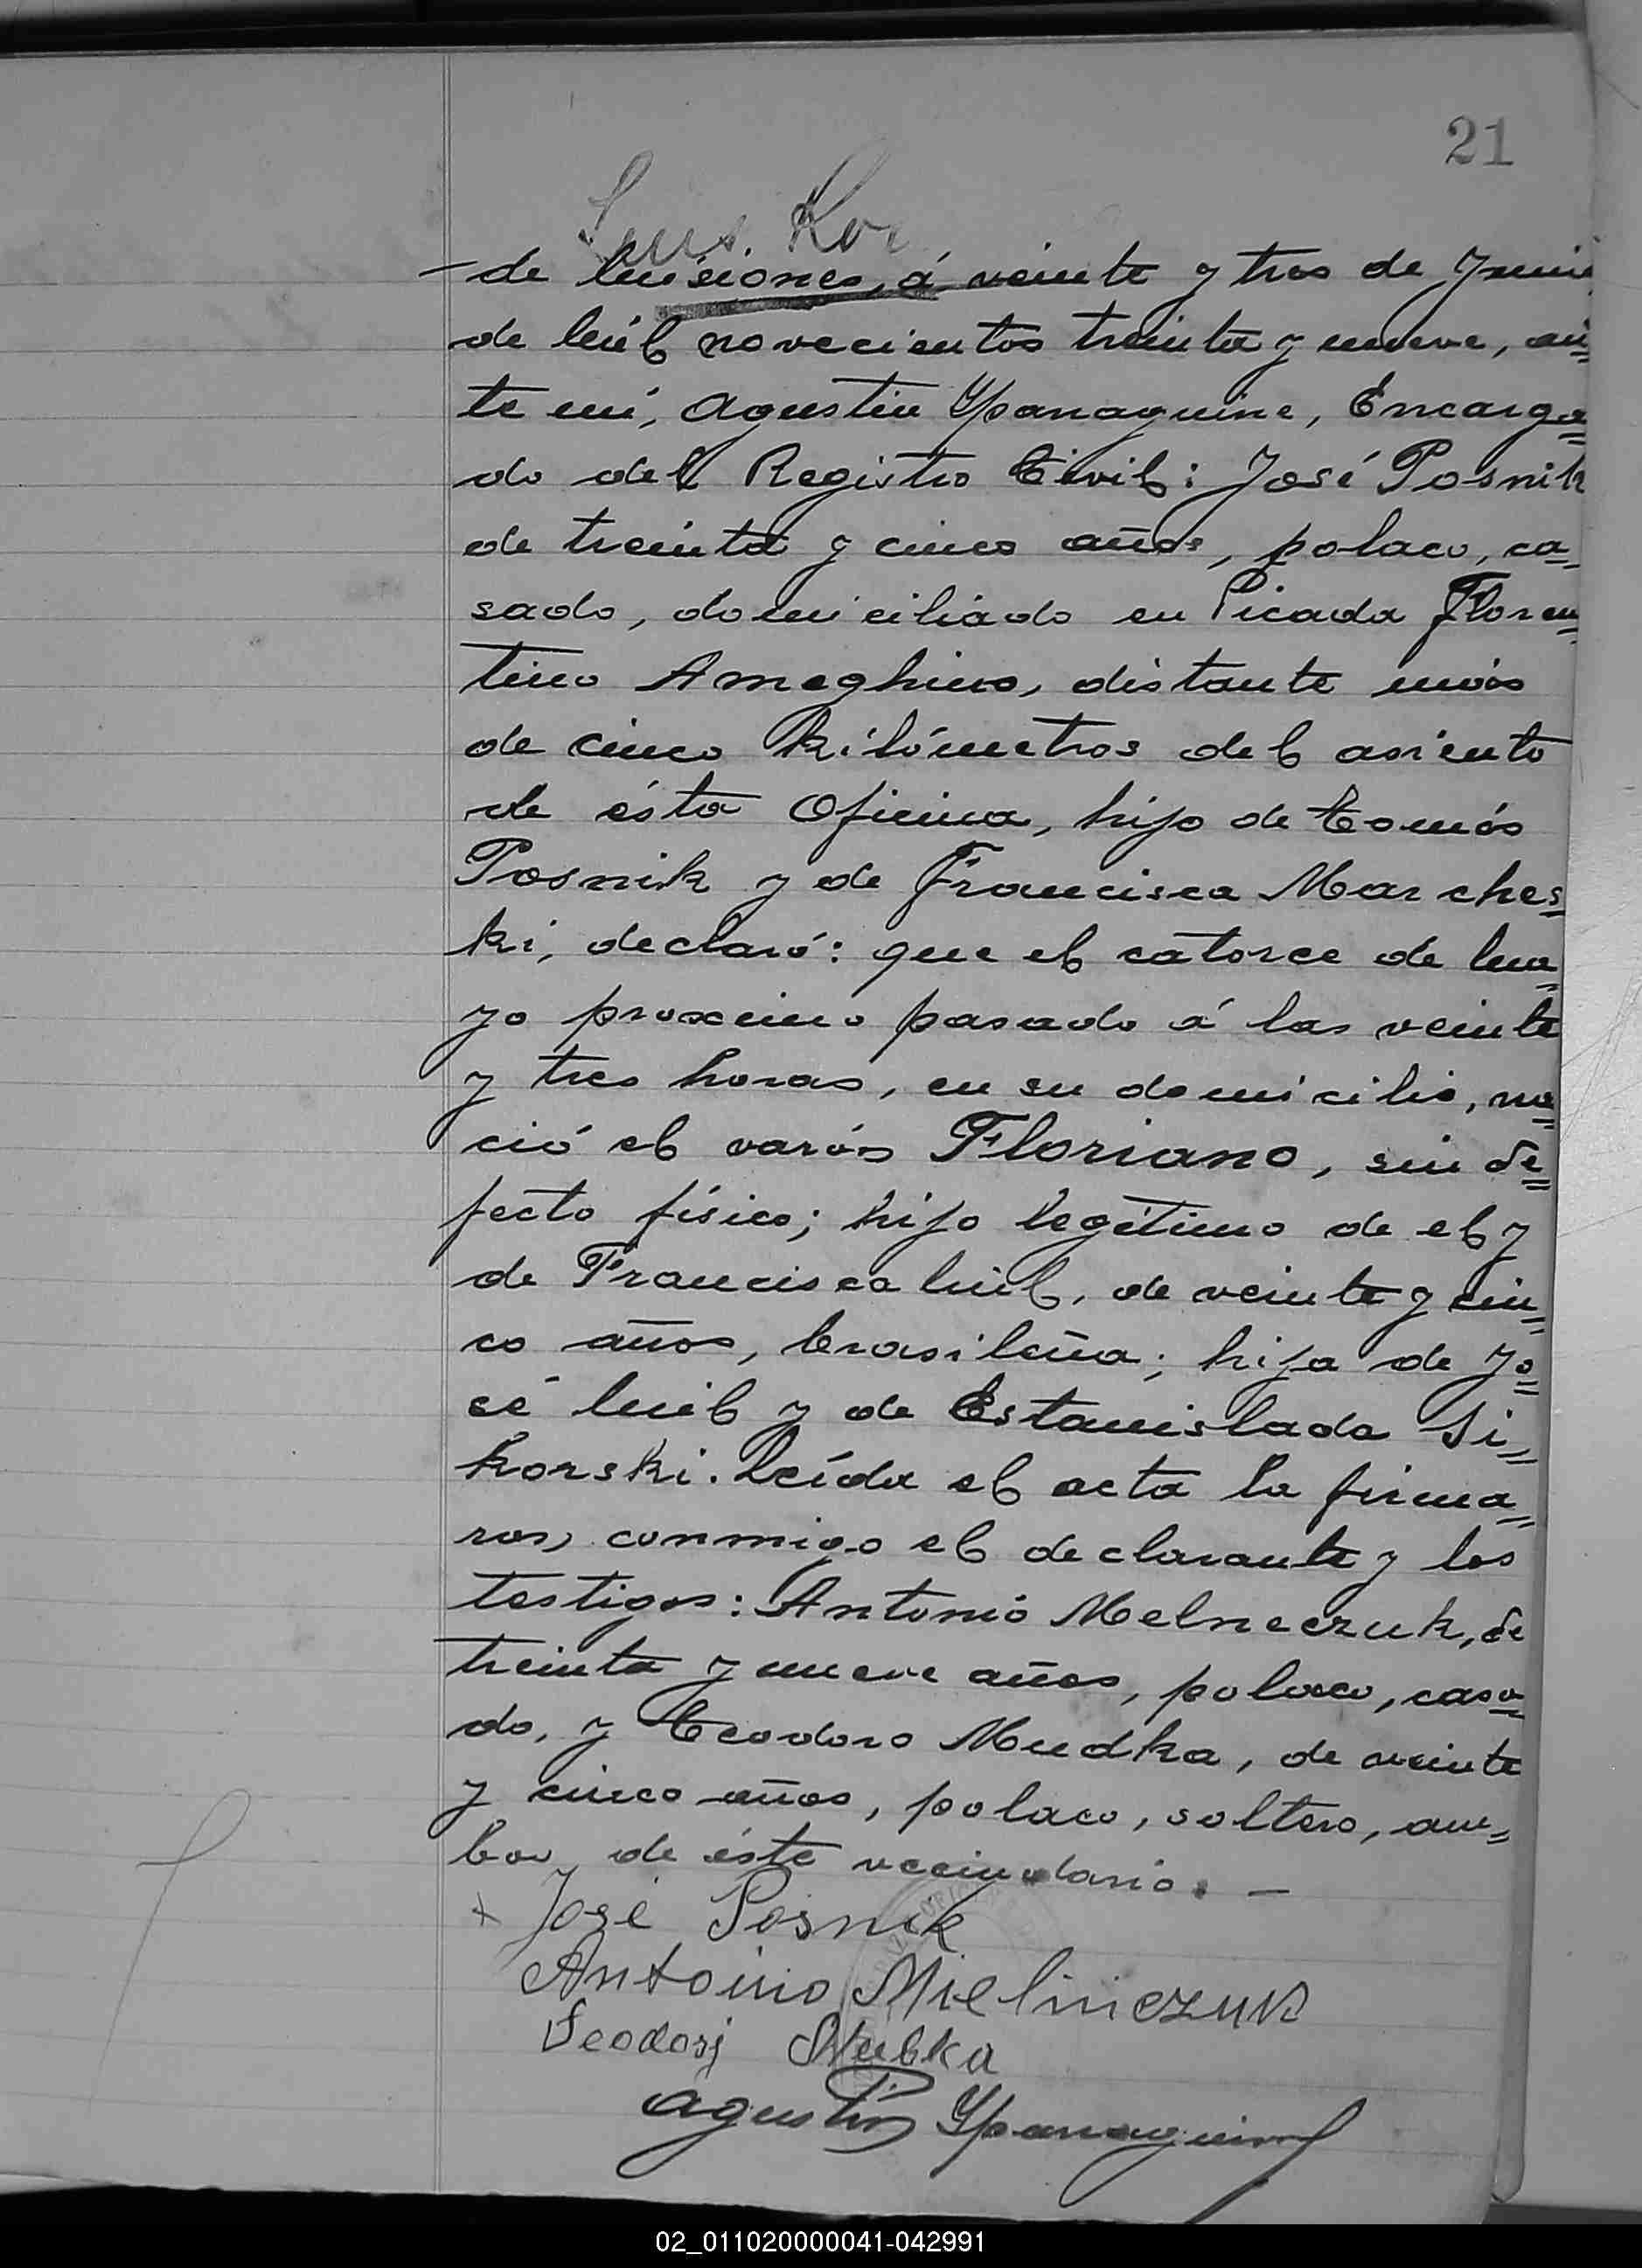 21
Luis Kor
de Misiones, á veinte y tres de Junio
de mil novecientos treinta y nueve, an=
te mí, Agustin Yparraguirre, Encarga=
do del Registro Civil: José Posnik
de treinta y cinco años, polaco, ca=
sado, domiciliado en Picada Floren=
tino Ameghino, distante más
de cinco kilómetros del asiento
de ésta Oficina, hijo de Tomás
Posnik y de Francisca Marches=
ki, declaró: que el catorce de Ma=
yo proximo pasado á las veinte
y tres horas, en su domicilio, na=
ció el varón Floriano, sin de=
fecto físico; hijo legítimo de el y
de Francisca Mil, de veinte y cin=
co años, brasileña; hija de Jo=
sé Mil y de Estanislada Si=
korski. Leída el acta la firma=
ron conmigo el declarante y los
testigos: Antonio Melneczuk, de
treinta y nueve años, polaco, casa=
do, y Teodoro Mudka, de veinte
y cinco años, polaco, soltero, am=
bos de éste vecindario. —
+ José Posnik
Antonio Mielniczuk
Teodorj
Agustin Yparraguirre
02_011020000041-042991